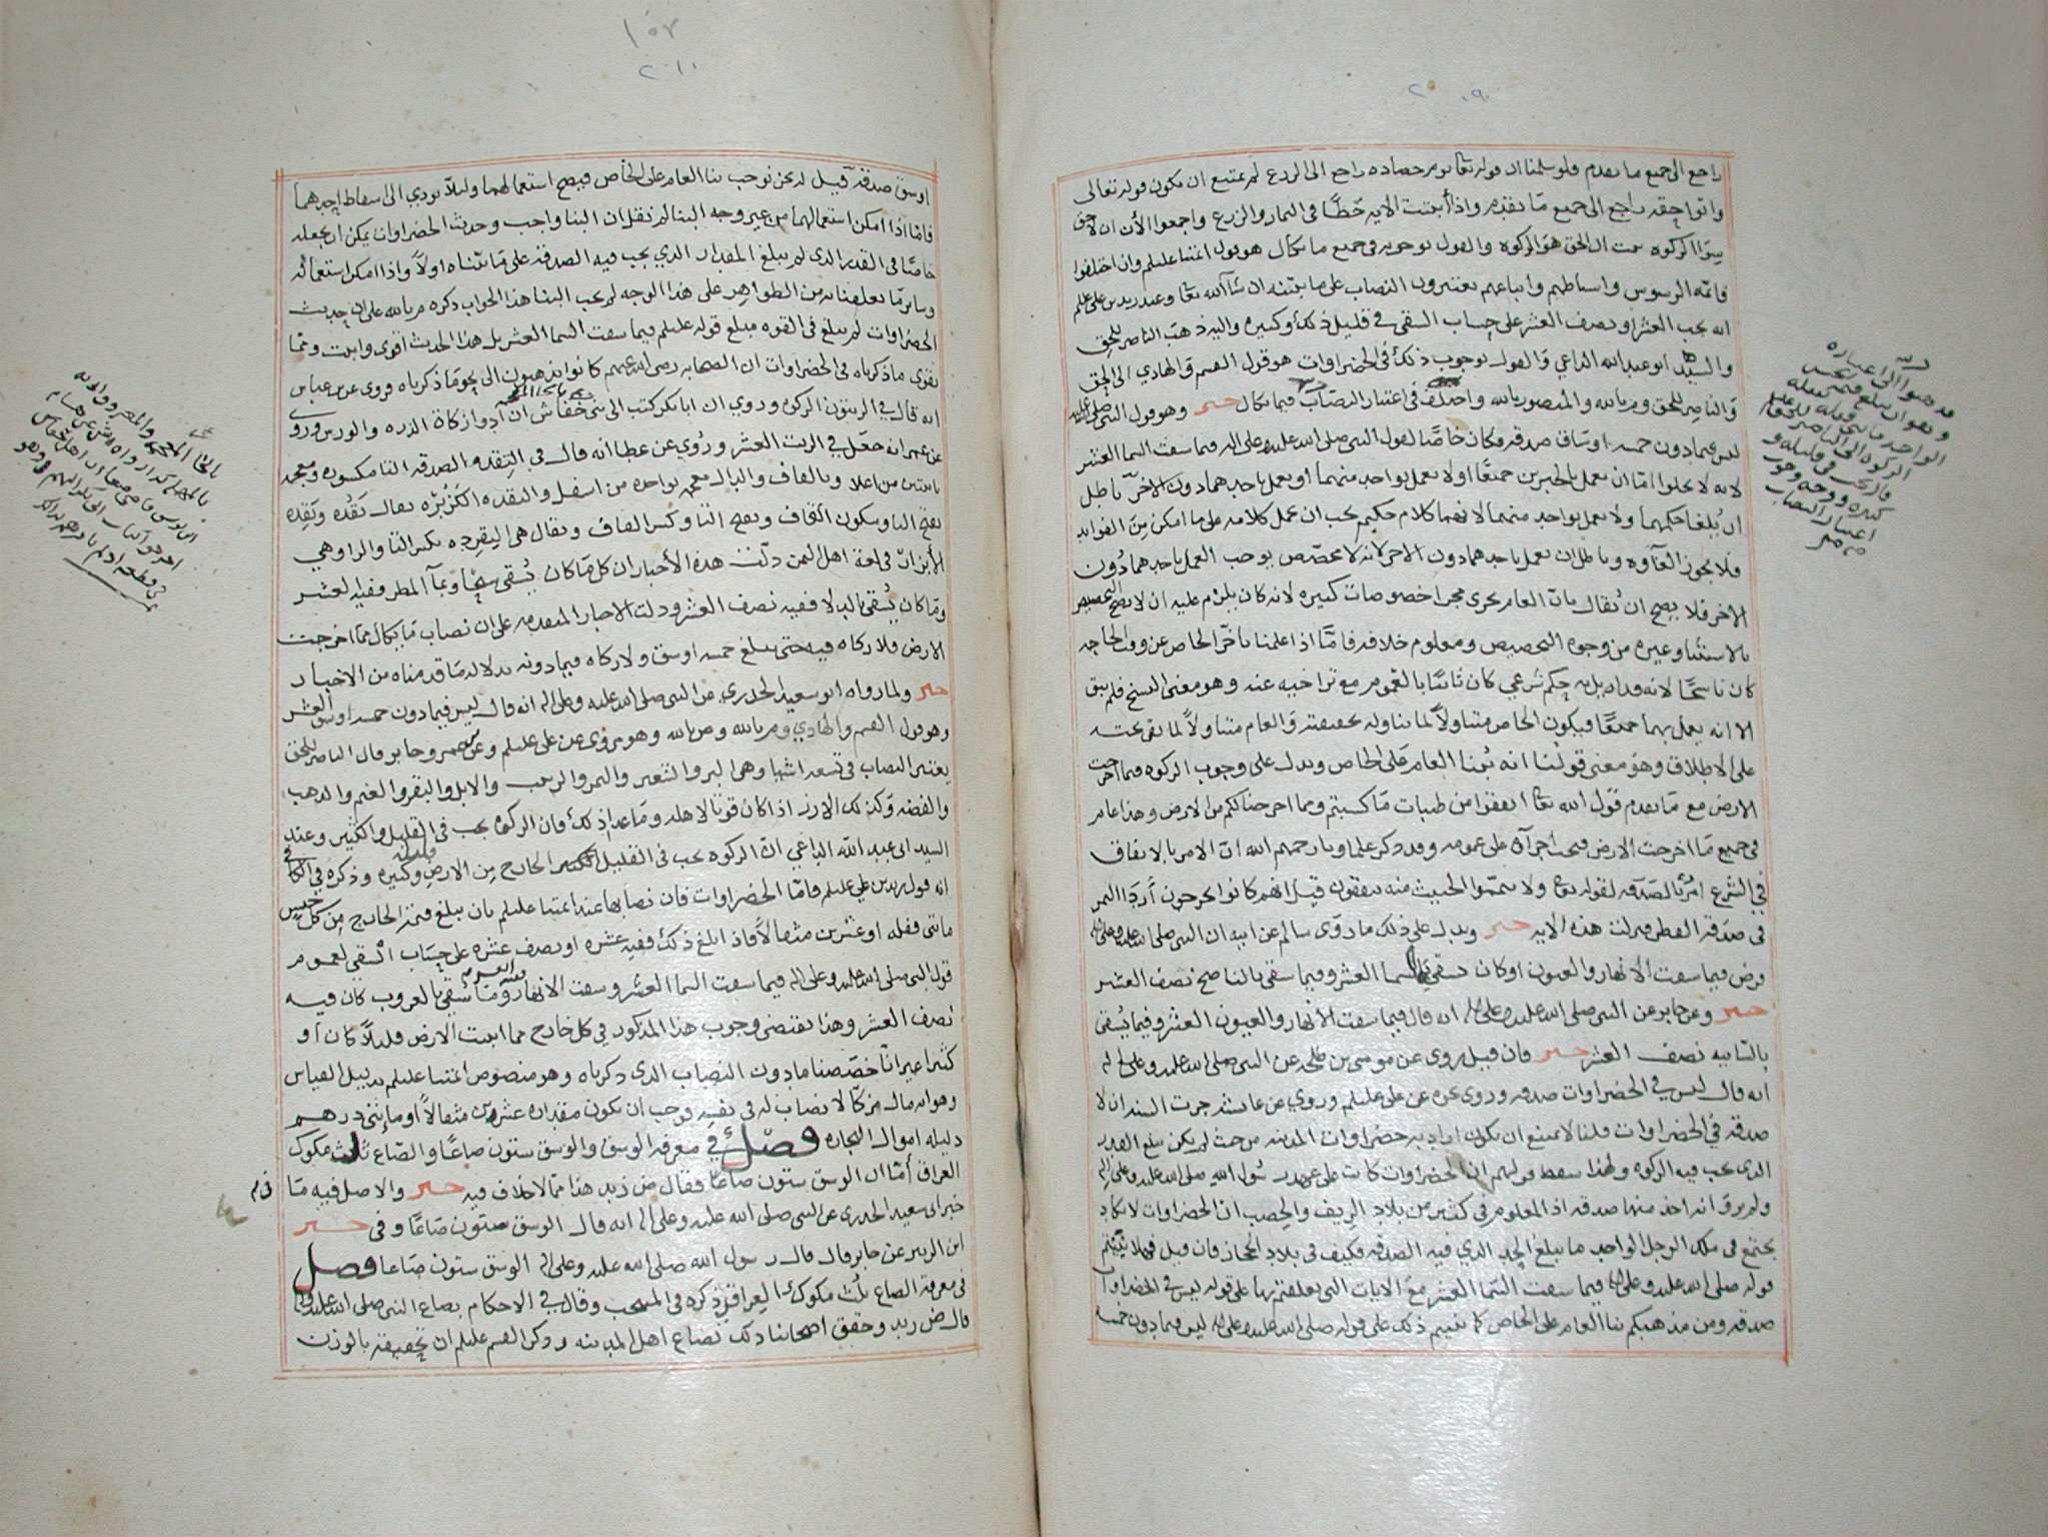 ٢٠٩
راجع الى جميع ما تقدم فلو سلمنا ان قوله تعا يوم حصاده راجع الى الزرع لم يمتنع ان يكون قوله تعالى
واتوا حقه راجع الى جميع ما تقدم واذا أثبتت الايه حقًا في الثمار والزرع واجمعوا الأن ان لا حق
سوا الزكوه ثبت ان الحق هو الزكوه والقول بوجوبه في جميع ما يكال هو قول ائمتنا عليلم وان اختلفوا
فائمه الرسوس واسباطهم واتباعهم يعتبرون النصاب على ما نبينه ان شآ الله تعا وعند زيد بن على علم
انه يجب العشر او نصف العشر على حساب السقي في قليل ذلك وكثيره واليه ذهب الناصر للحق
والسيد ابو عبد الله الداعي والقول بوجوب ذلك في الخضراوات هو قول القسم والهادي الى الحق
والناصر للحق وم بالله والمنصور بالله واختلف في اعتبار النصاب فيما يكال خبر وهو قول النبي صلى الله عليه
ليس فيما دون خمسه اوساق صدقه فكان خاصًا لقول النبي صلى الله عليه وعلى اله فيما سقت السما العشر
لانه لا يخلوا امّا ان يعمل بالخبرين جميعًا اولا يعمل بواحد منهما او يعمل باحدهما دون الاخر باطل
ان يُلغا حكمهما ولا يعمل بواحد منهما لانهما كلام حكيم يجب ان يحمل كلامه على ما امكن من الفوايد
فلا يجوز الغآوه وباطل ان يعمل باحدهما دون الاخر لانه لا مخصّص يوجب العمل باحدهما دُون
الاخر فلا يصح ان يُقال بانّ العام يجرى مجرا خصوصات كثيره لانه كان يلزم عليه ان لا يصح التخصيص
بالاستثنا وغيره من وجوه التخصيص ومعلوم خلافه فامّا اذا علمنا تأخّر الخاص عن وقت الحاجه
كان ناسخًا لانه قد ازيل به حكم شرعي كان ثابتًا بالعموم مع تراخيه عنه وهو معنى النسخ فلم يبق
الا انه يعمل بهما جميعًا فيكون الخاص متناولاً لما تناوله بحقيقته والعام متناولاً لما بقى تحته
على الاطلاق وهو معنى قولنا انه بُنىا العام على الخاص ويدل على وجوب الزكوه فيما اخرجت
الارض مع ما تقدم قول الله تعا انفقوا من طيبات ما كسبتم ومما اخرجنا لكم من الارض وهذا عام
في جميع ما اخرجت الارض فيجب اجرآه على عمومه وقد ذكر علماونا رحمهم الله ان الامر بالانفاق
في الشرع امرٌ بالصدقه لقوله تعا ولا تيمموا الخبيث منه تنفقون قيل انهم كانوا يخرجون أردَا التمر
في صدقه الفطر فنزلت هذه الايه خبر ويدل على ذلك ما روى سالم عن ابيه ان النبي صلى الله عليه وعلى اله
فرض فيما سقت الانهار والعيون او كان يسقي بالسما العشر وفيما سقي بالناضح نصف العشر
خبر وعن جابر عن النبي صلى الله عليه وعلى اله انه قال فيما سقت الأنهار والعيون العشر وفيما يُسقى
بالسّانيه نصف العشر خبر فان قيل روى عن موسى بن طلحه عن النبي صلى الله عليه وعلى اله
انه قال ليس في الخضراوات صدقه وروى نحوه عن على عليلم وروي عن عايشه جرت السنه ان لا
صدقه في الخضراوات قلنا لا يمتنع ان يكون اراد به خضراوات المدينه من حيث لم يكن يبلغ القدر
الذى تجب فيه الزكوه ولهذا سقط قولهم ان الخضراوات كانت على عهد رسُول الله صلى الله عليه وعلى اله
ولم يرو انه اخذ منها صدقه اذ المعلوم في كثير من بلاد الريف والخصب ان الخضراوات لا تكاد
يجتمع في ملك الرجل الواحد ما يبلغ الحد الذي فيه الصدقه فكيف في بلاد الحجاز فان قيل فهلا بنيتم
قوله صلى الله عليه وعلى اله فيما سقت السّما العشر مع الايات التي تعلقتم بها على قوله ليس في الخضراوات
صدقه ومن مذهبكم بنا العام على الخاص كما بنيتم ذلك على قوله صلى الله عليه وعلى اله ليس فيما دون خمسه
قد ذهبوا الى اعتباره
١٥٣
٢١٠
اوسق صدقه قيل له نحن نوجب بنا العام على الخاص فيصح استعمالهما وليلاّ يودي الى اسقاط احدهما
فامّا اذا امكن استعمالهما من غير وجه البنا لم نقل ان البنا واجب وحديث الخضراوات يمكن ان نجعله
خاصًا في القدر الذى لم يبلغ المقدار الذي يجب فيه الصدقه على ما بيّناه اولاً واذا امكن استعماله
وساير ما تعلقنا به من الظواهر على هذا الوجه لم يجب البنا هذا الجواب ذكره م بالله على ان حديث
الخضراوات لم يبلغ في القوه مبلغ قوله عليلم فيما سقت السما العشر بل هذا الحديث اقوى واثبت ومما
يقوى ما ذكرناه في الخضراوات ان الصحابه رضى الله عنهم كانوا يذهبون الى نحو ما ذكرناه فروى عن بن عباس
انه قال في الزيتون الزكوه وروي ان ابا بكر كتب الى بنى خفاش ان أدوا زكاة الذره والورس وروى
عن عمر انه جعل في الزيت العشر ورُوي عن عطا انه قال في التِقده الصدقه التا مكسوره ومعجمه
باثنتين من اعلا وبالقاف والدال معجمه بواحده من اسفل والتقده الكَزبُرَه يقال تَقدُه وتَقِده
بفتح التا وسكون القاف وبفتح التا وكسر القاف ويقال هي التِقرِده بكسر التا والرا وهي
الأبزار في لغة اهل اليمن دلّت هذه الأخبار ان كل ما كان يُسقى سيحًا وبمآ المطر ففيه العشر
وما كان يُسقى بالدلا ففيه نصف العشر ودلت الاخبار المتقدمه على ان نصاب ما يكال مما اخرجت
الارض فلا زكاه فيه حتى يبلغ خمسه اوسق ولا زكاه فيما دونه بدلاله ما قدمناه من الاخبار
خبر ولما رواه ابو سعيد الخدري عن النبي صلى الله عليه وعلى اله انه قال ليس فيما دون خمسه اوسق العشر
وهو قول القسم والهادي وم بالله وص بالله وهو مروى عن على عليلم وعن عمر وجابر قال الناصر للحق
يعتبر النصاب في تسعه اشيا وهى البر والشعير والتمر والزبيب والابل والبقر والغنم والذهب
والفضه وكذلك الارز اذا كان قوتًا لاهله وما عدا ذلك فان الزكوه تجب في القليل والكثير وعند
السيد ابى عبد الله الداعي انّ الزكوه تجب فى القليل الخارج من الارض وكثيره وذكره في الكافي
انه قول زيد بن علي عليلم فامّا الخضراوات فان نصابها عند ائمتنا عليلم بان يبلغ قيمه الخارج من كل جنس
مايتي قفله او عشرين مثقالاً فاذا بلغ ذلك ففيه عشره او نصف عشره على حساب السقي لعموم
قول النبي صلى الله عليه وعلى اله فيما سقت السما العشر وسقت الانهار وما سُقي بالغروب كان فيه
نصف العشر وهذا يقتضي وجوب هذا المذكور في كل خارج مما انبتت الارض قليلاً كان او
كثيرا غير انا خصّصنا ما دون النصاب الذى ذكرناه وهو منصوص ائمتنا عليلم بدليل القياس
وهو انه مال مزكّا لا نصاب له في نفسه فوجب ان يكون مقداره عشرين مثقالاً او مايتى درهم
دليله اموال التجاره فصل في معرفه الوسق والوسق ستون صاعًا والصّاع ثلث مكوك
العراق أمّا ان الوسق ستون صاعًا فقال ض زيد هذا مما لا خلاف فيه خبر والاصل فيه ما
خبر ابى سعيد الخدرى عن النبي صلى الله عليه وعلى اله انه قال الوسق ستون صاعًا وفى خبر
ابن الزبير عن جابر قال قال رسول الله صلى الله عليه وعلى اله الوسق ستون صاعا فصل
في معرفة الصاع ثلث مكوك العراق ذكره في المنتخب وقال في الاحكام بصاع النبي صلى الله عليه وعلى اله
قال ض زيد وحقق اصحابنا ذلك بصاع اهل المدينه وذكر القسم عليلم ان تحقيقه بالوزن